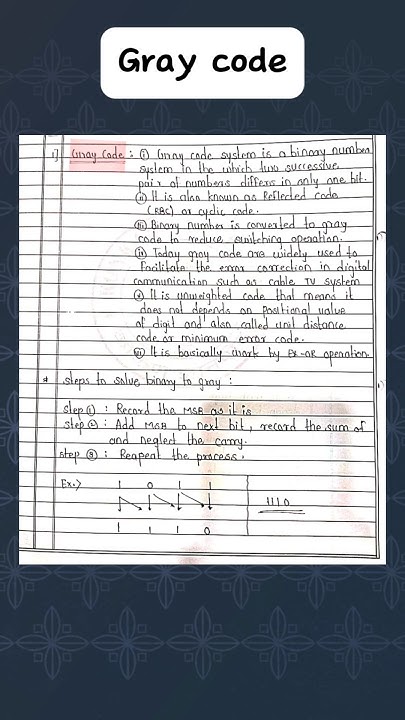 Gray code
1] Gray Code : ① Gray code system is a binary number
system in the which two successive
pair of numbers differs in only one bit.
② It is also known as Reflected code
(RBC) or cyclic code.
③ Binary number is converted to gray
code to reduce switching operation.
④ Today gray code are widely used to
facilitate the error correction in digital
communication such as cable TV system
⑤ It is unweighted code that means it
does not depends on positional value
of digit and also called unit distance
code or minimum error code.
⑥ It is basically work by EX-OR operation.
* steps to solve binary to gray :
step ① : Record the MSB as it is
step ② : Add MSB to next bit, record the sum of
and neglect the carry.
step ③ : Reapeat the process.
Ex.→ 1 0 1 1
1110
1 1 1 0